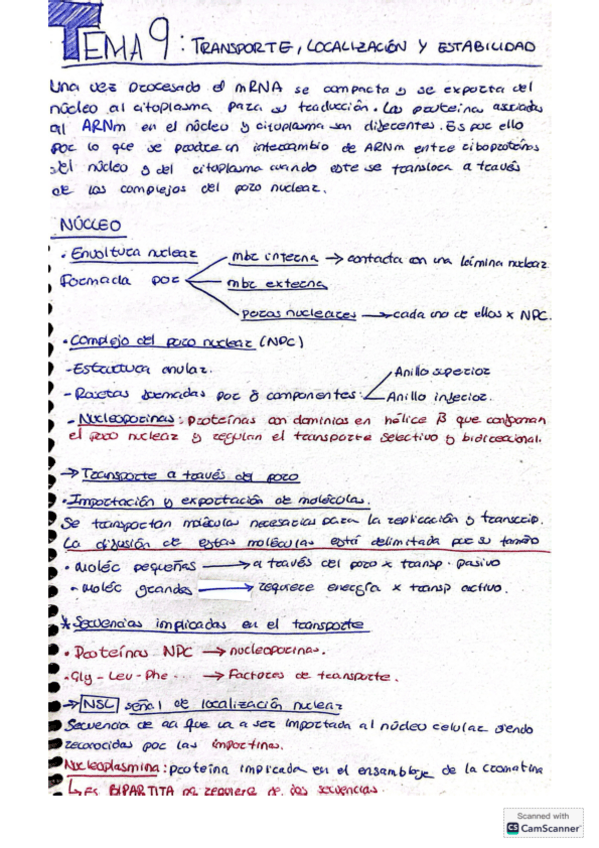 TEMA 9: TRANSPORTE, LOCALIZACIÓN Y ESTABILIDAD
Una vez procesado el mRNA se compacta y se exporta del
núcleo al citoplasma para su traducción. Las proteínas asociadas
al ARNm en el núcleo y citoplasma son diferentes. Es por ello
por lo que se produce un intercambio de ARNm entre riboproteínas
del núcleo y del citoplasma cuando este se transloca a través
de los complejos del poro nuclear.
NÚCLEO
· Envoltura nuclear
Formada por
mbr interna → contacta con una lámina nuclear
mbr externa
poros nucleares → cada uno de ellos x NPC.
· Complejo del poro nuclear (NPC)
- Estructura anular.
- Rosetas formadas por 8 componentes:
Anillo superior
Anillo inferior.
- Nucleoporinas: proteínas con dominios en hélice β que conforman
el poro nuclear y regulan el transporte selectivo y bidireccional.
→ Transporte a través del poro
· Importación y exportación de moléculas.
Se transportan moléculas necesarias para la replicación y transcrip.
La difusión de estas moléculas está delimitada por su tamaño
· moléc pequeñas → a través del poro x transp. pasivo
· moléc grandes → requiere energía x transp activo.
* Secuencias implicadas en el transporte
· Proteínas NPC → nucleoporinas.
· Gly - Leu - Phe ... → Factores de transporte.
→ NSL señal de localización nuclear
Secuencia de aa que va a ser importada al núcleo celular siendo
reconocidas por las importinas.
Nucleoplasmina: proteína implicada en el ensamblaje de la cromatina
↳ Es BIPARTITA pq requiere de dos secuencias.
Scanned with
CS CamScanner